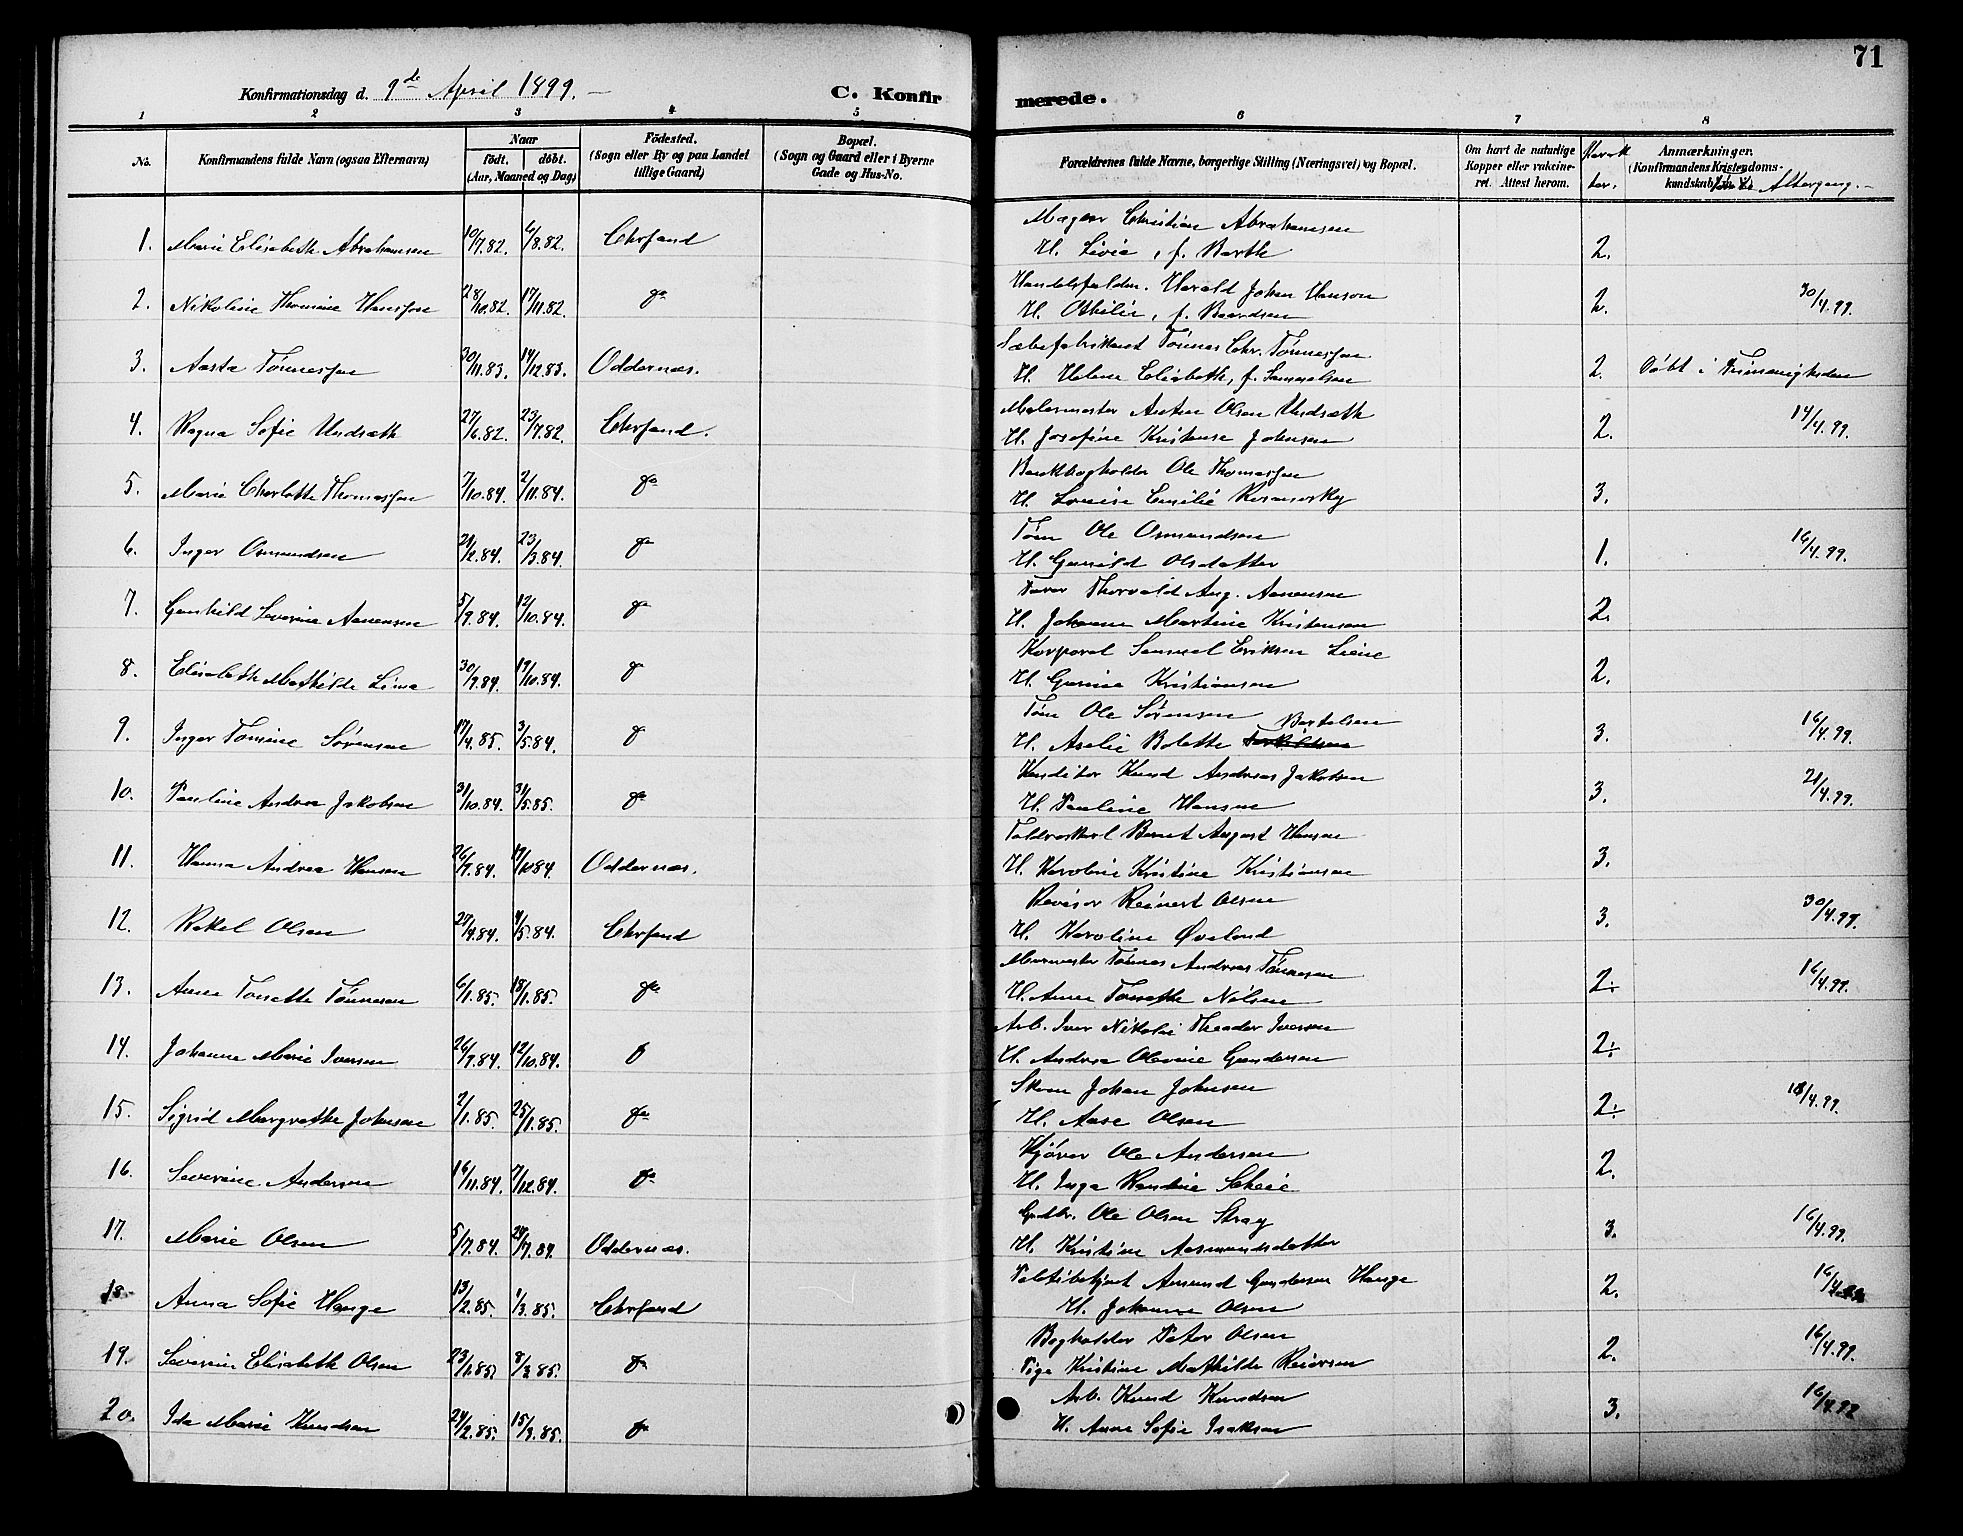 71
Konfirmationsdag d. 9de April 1899.
C. Konfirmerede.
1 2 3 4 5 6 7 8
No.
Konfirmandens fulde Navn (ogsaa Efternavn)
Naar
født. døbt.
(Aar, Maaned og Dag)
Fødested.
(Sogn eller By og paa Landet
tillige Gaard)
Bopæl.
(Sogn og Gaard eller i Byerne
Gade og Hus-No.
Forældrenes fulde Navne, borgerlige Stilling (Næringsvei) og Bopæl.
Om havt de naturlige
Kopper eller vakcine-
ret. Attest herom.
Anmærkninger.
(Konfirmandens Kristendoms-
kundskab Altergang.
1. Marie Elisabeth Abrahamsen 10/7.82. 6/8.82. Chrsand Christian Abrahamsen 2.
H. Livia, f. Barth
2. Nikoline Thomine Hanssen 28/10.82. 17/11.82. do Harald Johan Hansen 2. 30/4.99.
H. Othilie, f. Baardsen
3. Aasta Tønnessen 30/11.83. 14/12.83. Oddernæs. Sæbefabrikant Tønnes Chr. Tønnessen 2. Døbt i Frimenigheden
H. Helene Elisabeth, f. Samuelsen
4. Ragna Sofie Undsæth 27/6.82. 23/7.82. Chrsand. Malermester Anton Olsen Undsæth 2. 14/4.99.
H. Josefine Kristense Johnsen
5. Marie Charlotte Thomassen 7/10.84. 2/11.84. do Bankbogholder Ole Thomassen 3.
H. Lovise Emilie
6. Inger Osmundsen 29/2.84. 23/3.84. do Tøm Ole Osmundsen 1. 16/4.99.
H. Gunild Olsdatter
7. Gunhild Severine Aanensen 5/9.84. 12/10.84. do Farver Thorvald Aug. Aanensen 2.
H. Johanne Martine Kristensen
8. Elisabeth Mathilde Lima 30/9.84. 19/10.84. do Korporal Samuel Eriksen Lima 2.
H. Gurine Kristiansen
9. Inger Tomine Sørensen 17/4.85. 3/5.84. do Tøm Ole Sørensen 3. 16/4.99.
H. Aselie Bolette Bertelsen
10. Pauline Andrea Jakobsen 31/10.84. 31/5.85. do Konditor Knud Andreas Jakobsen 3. 21/4.99.
H. Pauline Hansen
11. Hanna Andrea Hansen 26/9.84. 19/10.84. Oddernæs. Toldroskarl Bernt August Hansen 3.
H. Karoline Kristine Kristiansen
12. Rakel Olsen 27/4.84. 4/5.84. Chrsand Revisor Reinert Olsen 3. 30/4.99.
H. Karoline Øveland
13. Anne Tonette Tønnesen 6/1.85. 18/1.85. do Murmester Tønnes Andreas Tønnesen 2. 16/4.99.
H. Anne Tonette Nilsen
14. Johanne Marie Iversen 26/9.84. 12/10.84. do Arb. Iver Nikolai Theodor Iversen 2.
H. Andrea Olevine Gundersen
15. Sigrid Margrethe Johnsen 2/1.85. 25/1.85. do Skom Johan Johnsen 2. 18/4.99.
H. Aase Olsen
16. Severine Andersen 14/11.84. 7/12.84. do Kjører Ole Andersen 2.
H. Inga Randine Scheie
17. Marie Olsen 5/7.84. 29/7.84. Oddernæs. Gdbr. Ole Olsen Stray 3. 16/4.99.
H. Kristine Aasmundsdatter
18. Anna Sofie Hauge 13/2.85. 1/3.85. Chrsand Politibetjent Amund Gundersen Hauge 2. 16/4.99
H. Johanne Olsen
19. Severine Elisabeth Olsen 23/1.85. 8/3.85. do Bogholder Peter Olsen 2. 16/4.99.
Pige Kristine Mathilde Reiersen
20. Ida Marie Knudsen 24/2.85. 15/3.85. do Arb. Knud Knudsen 3. 16/4.99
H. Anne Sofie Isaksen